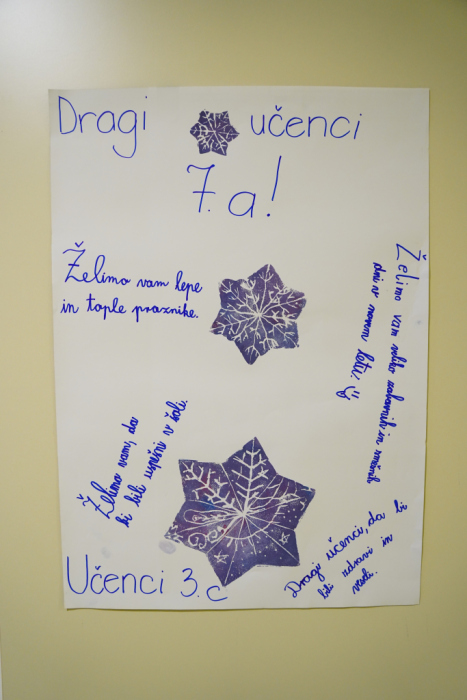 Dragi učenci
7. a!
Želimo vam lepe
in tople praznike.
Želimo vam veliko zabavnih in srečnih
dni v novem letu.
Želimo vam, da
bi bili uspešni v šoli.
Dragi učenci, da bi
bili zdravi in
veseli.
Učenci 3. c